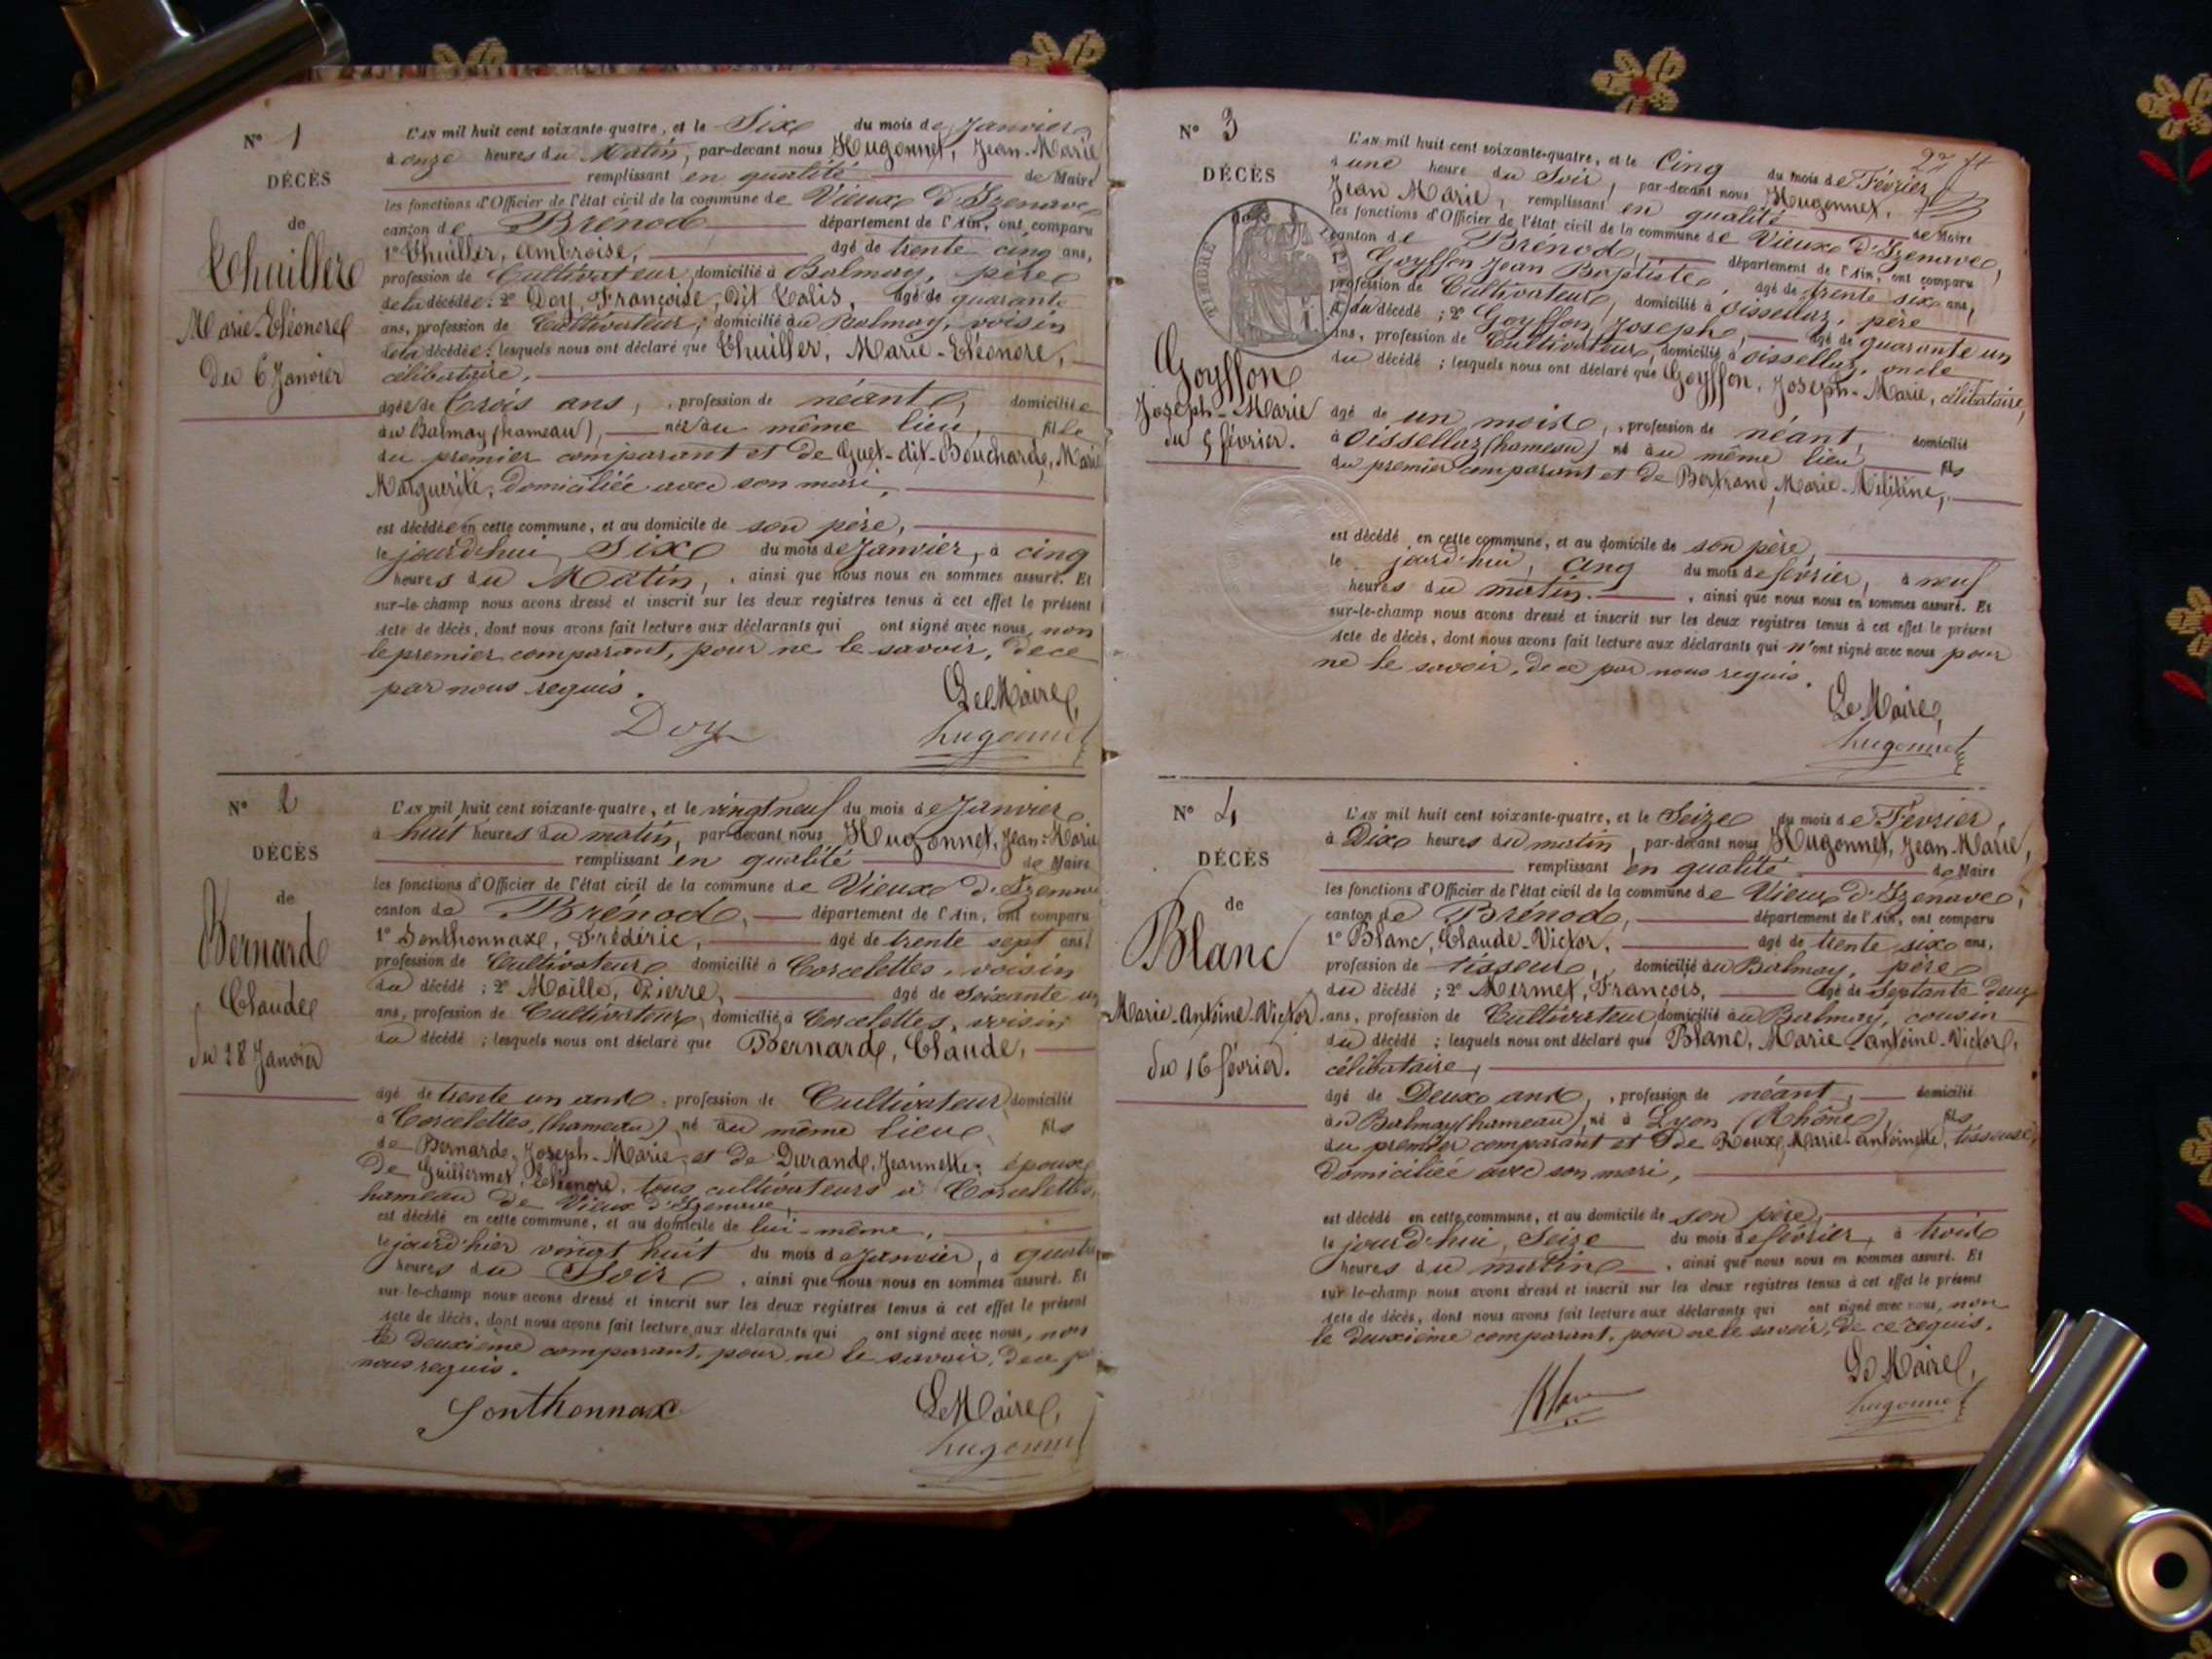 N° 1
DÉCÈS
de
Thuiller
Marie-Eléonore
Du 6 Janvier
L'AN mil huit cent soixante-quatre, et le Six du mois de Janvier
à onze heures du Matin, par-devant nous Hugonnet, Jean-Marie
remplissant en qualité de Maire
les fonctions d'Officier de l'état civil de la commune de Vieux d'Izenave
canton de Brénod département de l'Ain, ont comparu
1° Thuiller, Ambroise, âgé de trente cinq ans,
profession de Cultivateur, domicilié à Balmay, père
de la décédée: 2° Doy, Françoise, dit Calis, âgé de quarante
ans, profession de Cultivateur; domicilié au Balmay, voisin
de la décédée: lesquels nous ont déclaré que Thuiller, Marie-Eléonore,
célibataire,
âgée de trois ans, profession de néant, domiciliée
au Balmay (hameau), née au même lieu, fille
du premier comparant et de Guet-dit-Bouchard, Marie
Marguerite, domiciliée avec son mari,
est décédée en cette commune, et au domicile de son père,
le jourd'hui, Six du mois de Janvier, à cinq
heures du Matin, ainsi que nous nous en sommes assuré. Et
sur-le-champ nous avons dressé et inscrit sur les deux registres tenus à cet effet le présent
acte de décès, dont nous avons fait lecture aux déclarants qui ont signé avec nous, non
le premier comparant, pour ne le savoir, de ce
par nous requis.
Le Maire,
Doy hugonnet
N° 2
DÉCÈS
de
Bernard
Claude
du 28 Janvier
L'AN mil huit cent soixante-quatre, et le vingt neuf du mois de Janvier
à huit heures du matin, par-devant nous Hugonnet, Jean-Marie
remplissant en qualité de Maire
les fonctions d'Officier de l'état civil de la commune de Vieux d'Izenave
canton de Brénod, département de l'Ain, ont comparu
1° Sonthonnax, Frédéric, âgé de trente sept ans,
profession de Cultivateur domicilié à Corcelettes, voisin
du décédé; 2° Maille, Pierre, âgé de Soixante un
ans, profession de Cultivateur, domicilié à Corcelettes, voisin
du décédé; lesquels nous ont déclaré que Bernard, Claude,
âgé de trente un ans, profession de Cultivateur domicilié
à Corcelettes (hameau), né au même lieu, fils
de Bernard, Joseph-Marie et de Durand, Jeannette; époux
de Guillermet, Eléonore, tous cultivateurs à Corcelettes,
hameau de Vieux d'Izenave,
est décédé en cette commune, et au domicile de lui-même,
le jourd'hier vingt huit du mois de Janvier, à quatre
heures du Soir, ainsi que nous nous en sommes assuré. Et
sur-le-champ nous avons dressé et inscrit sur les deux registres tenus à cet effet le présent
acte de décès, dont nous avons fait lecture aux déclarants qui ont signé avec nous, non
le deuxième comparant, pour ne le savoir, de ce par
nous requis.
Sonthonnax Le Maire,
hugonnet
N° 3
DÉCÈS
de
TIMBRE IMPÉRIAL
Goyffon
Joseph-Marie
du 5 février.
L'AN mil huit cent soixante-quatre, et le Cinq du mois de Février
à une heure du Soir, par-devant nous Hugonnet,
Jean Marie, remplissant en qualité de Maire
les fonctions d'Officier de l'état civil de la commune de Vieux d'Izenave,
canton de Brénod, département de l'Ain, ont comparu
Goyffon Jean Baptiste, âgé de trente six ans,
profession de Cultivateur, domicilié à Oisselaz, père
du décédé; 2° Goyffon, Joseph, âgé de quarante un
ans, profession de Cultivateur, domicilié à Oissellaz, oncle
du décédé; lesquels nous ont déclaré que Goyffon, Joseph-Marie, célibataire,
âgé de un mois, profession de néant, domicilié
à Oissellaz (hameau) né au même lieu, fils
du premier comparant et de Bertrand, Marie-Mélitine,
est décédé en cette commune, et au domicile de son père,
le jourd'hui, cinq du mois de février, à neuf
heures du matin, ainsi que nous nous en sommes assuré. Et
sur-le-champ nous avons dressé et inscrit sur les deux registres tenus à cet effet le présent
acte de décès, dont nous avons fait lecture aux déclarants qui n'ont signé avec nous pour
ne le savoir, de ce par nous requis.
Le Maire,
hugonnet
N° 4
DÉCÈS
de
Blanc
Marie-Antoine-Victor
du 16 février.
L'AN mil huit cent soixante-quatre, et le Seize du mois de Février,
à Dix heures du matin, par-devant nous Hugonnet, Jean-Marie,
remplissant en qualité de Maire
les fonctions d'Officier de l'état civil de la commune de Vieux d'Izenave,
canton de Brénod, département de l'Ain, ont comparu
1° Blanc, Claude-Victor, âgé de trente six ans,
profession de tisseur, domicilié au Balmay, père
du décédé; 2° Mermet, François, âgé de septante deux
ans, profession de Cultivateur domicilié au Balmay, cousin
du décédé; lesquels nous ont déclaré que Blanc, Marie-Antoine-Victor,
célibataire,
âgé de Deux ans, profession de néant, domicilié
au Balmay (hameau), né à Lyon (Rhône), fils
du premier comparant et de Roux, Marie-Antoinette, tisseuse,
domiciliée avec son mari,
est décédé en cette commune, et au domicile de son père,
le jourd'hui, Seize du mois de février, à trois
heures du matin, ainsi que nous nous en sommes assuré. Et
sur-le-champ nous avons dressé et inscrit sur les deux registres tenus à cet effet le présent
acte de décès, dont nous avons fait lecture aux déclarants qui ont signé avec nous, non
le deuxième comparant, pour ne le savoir, de ce requis.
Le Maire,
hugonnet